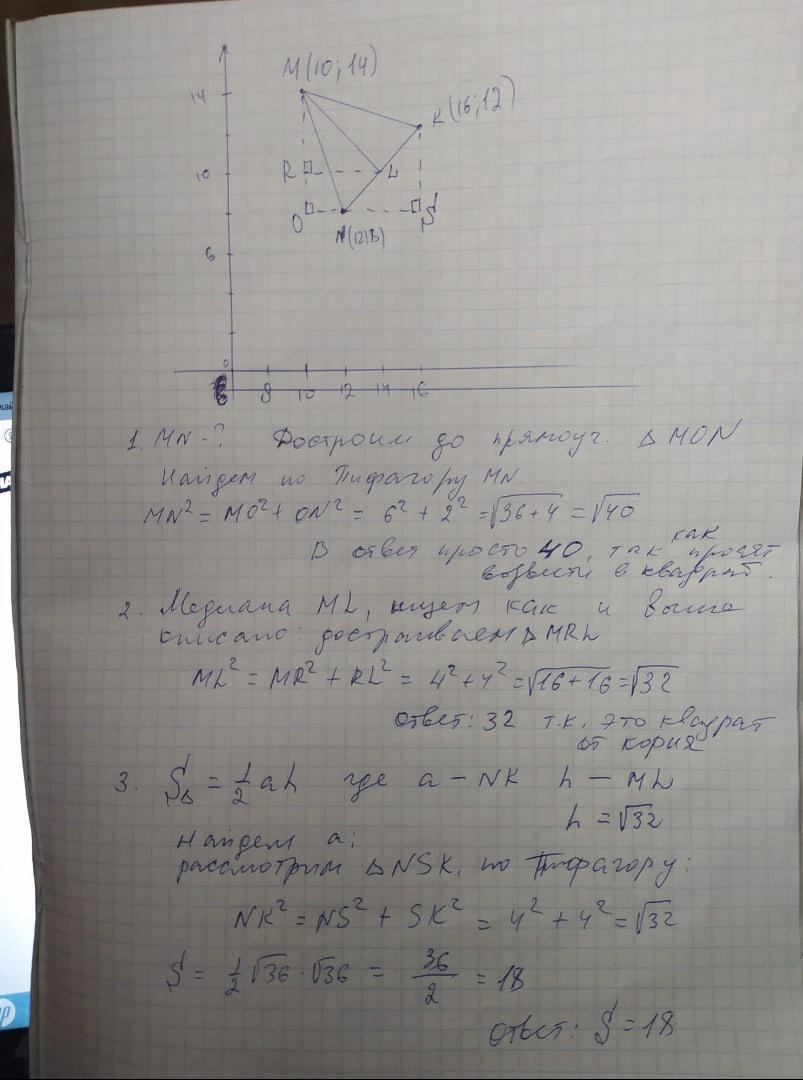 M(10; 14)
14
K(16; 12)
R
L
10
O
S
N(12; 8)
6
0
8 10 12 14 16
1. MN-? Достроим до прямоуг. △ MON
Найдем по Пифагору MN.
MN² = MO² + ON² = 6² + 2² = √36+4 = √40
В ответ просто 40, так как просят
возвести в квадрат.
2. Медиана ML, ищем как и выше
описано: достраиваем △ MRL
ML² = MR² + RL² = 4² + 4² = √16+16 = √32
Ответ: 32 т.к. это квадрат
от корня
3. S△ = 1/2 a h где a - NK h - ML
h = √32
Найдем a:
рассмотрим △ NSK, по Пифагору:
NK² = NS² + SK² = 4² + 4² = √32
S = 1/2 √36 · √36 = 36/2 = 18
Ответ: S = 18